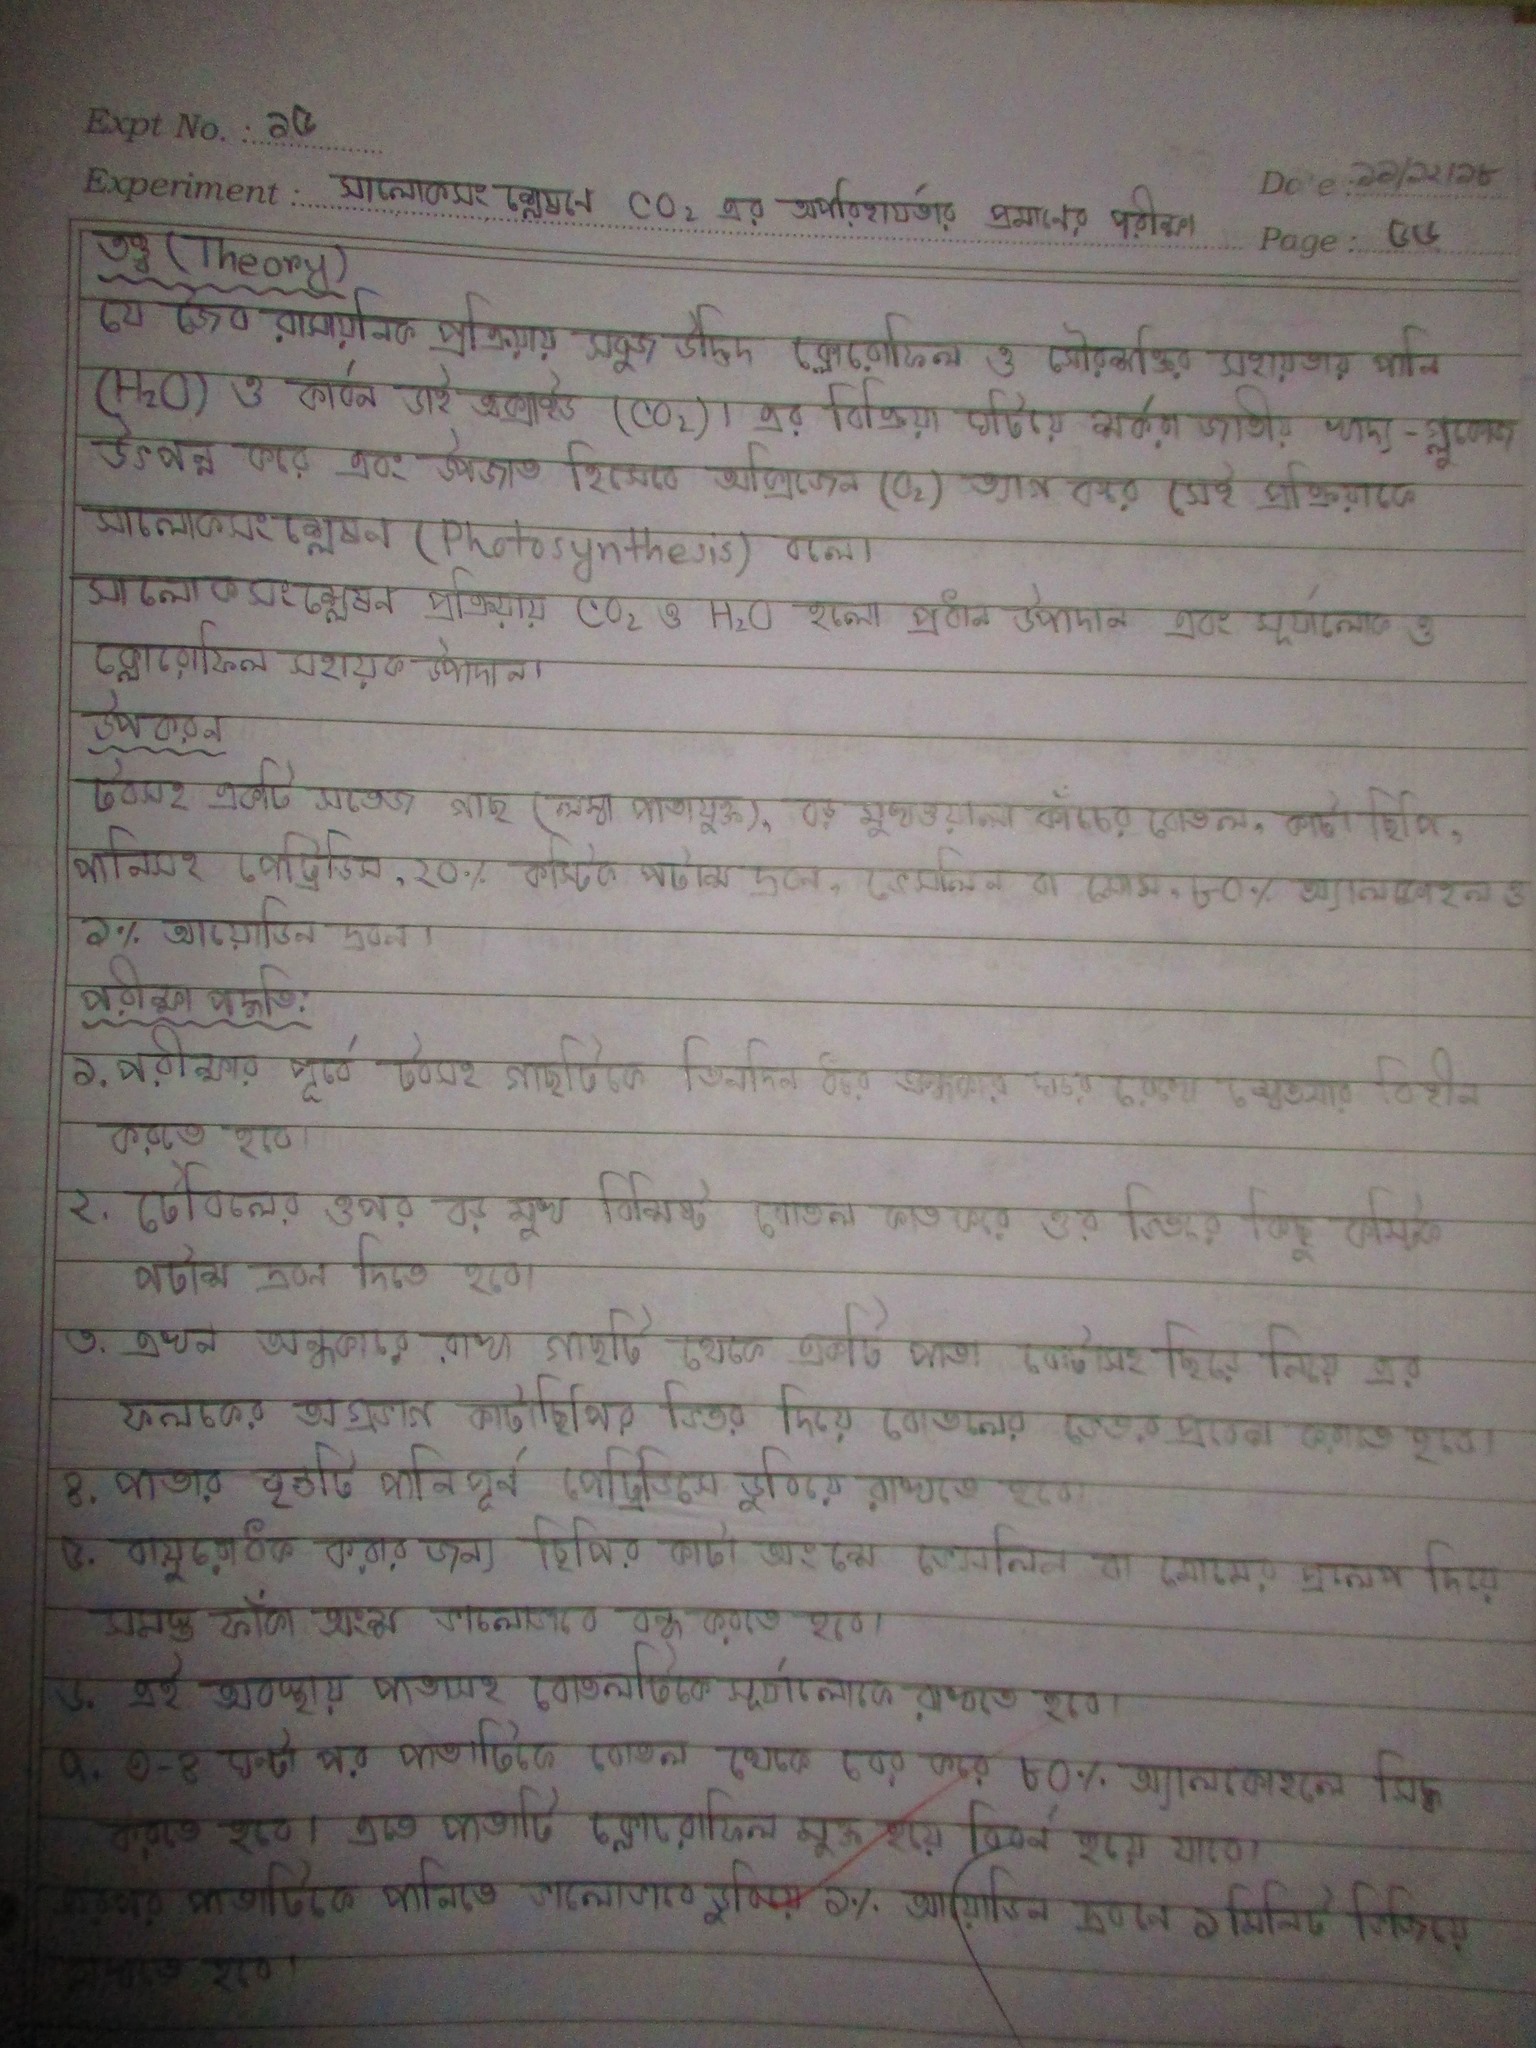 Expt No. : ১৫
Date : ১১/১২/১৮
Experiment : সালোকসংশ্লেষনে CO₂ এর অপরিহার্যতার প্রমানের পরীক্ষা
Page : ৫৫
তত্ত্ব (Theory)
যে জৈব রাসায়নিক প্রক্রিয়ায় সবুজ উদ্ভিদ ক্লোরোফিল ও সৌরশক্তির সহায়তার পানি
(H₂O) ও কার্বন ডাই অক্সাইড (CO₂)। এর বিক্রিয়া ঘটিয়ে শর্করা জাতীয় খাদ্য - গ্লুকোজ
উৎপন্ন করে এবং উপজাত হিসেবে অক্সিজেন (O₂) ত্যাগ করে সেই প্রক্রিয়াকে
সালোকসংশ্লেষন (Photosynthesis) বলে।
সালোকসংশ্লেষন প্রক্রিয়ায় CO₂ ও H₂O হলো প্রধান উপাদান এবং সূর্যালোক ও
ক্লোরোফিল সহায়ক উপাদান।
উপকরন
টবসহ একটি সতেজ গাছ (লম্বা পাতাযুক্ত), বড় মুখওয়ালা কাঁচের বোতল, কাটা ছিপি,
পানিসহ পেট্রিডিস, ২০% কস্টিক পটাশ দ্রবন, ভেসলিন বা মোম, ৮০% অ্যালকোহল ও
১% আয়োডিন দ্রবন।
পরীক্ষা পদ্ধতি:
১. পরীক্ষার পূর্বে টবসহ গাছটিকে তিনদিন ধরে অন্ধকার ঘরে রেখে শ্বেতসার বিহীন
করতে হবে।
২. টেবিলের ওপর বড় মুখ বিশিষ্ট বোতল কাত করে ওর ভিতরে কিছু কস্টিক
পটাশ দ্রবন দিতে হবে।
৩. এখন অন্ধকারে রাখা গাছটি থেকে একটি পাতা বোটাসহ ছিঁড়ে নিয়ে এর
ফলকের অগ্রভাগ কাটাছিপির ভিতর দিয়ে বোতলের ভেতর প্রবেশ করাতে হবে।
৪. পাতার বৃন্তটি পানিপূর্ন পেট্রিডিসে ডুবিয়ে রাখতে হবে।
৫. বায়ুরোধক করার জন্য ছিপির কাটা অংশে ভেসলিন বা মোমের প্রলেপ দিয়ে
সমস্ত ফাঁকা অংশ ভালোভাবে বন্ধ করতে হবে।
৬. এই অবস্থায় পাতাসহ বোতলটিকে সূর্যালোকে রাখতে হবে।
৭. ৩-৪ ঘন্টা পর পাতাটিকে বোতল থেকে বের করে ৮০% অ্যালকোহলে সিদ্ধ
করতে হবে। এতে পাতাটি ক্লোরোফিল মুক্ত হয়ে বিবর্ন হয়ে যাবে।
পাতাটিকে পানিতে ভালোভাবে ডুবিয়ে ১% আয়োডিন দ্রবনে ১ মিনিট ভিজিয়ে
রাখতে হবে।